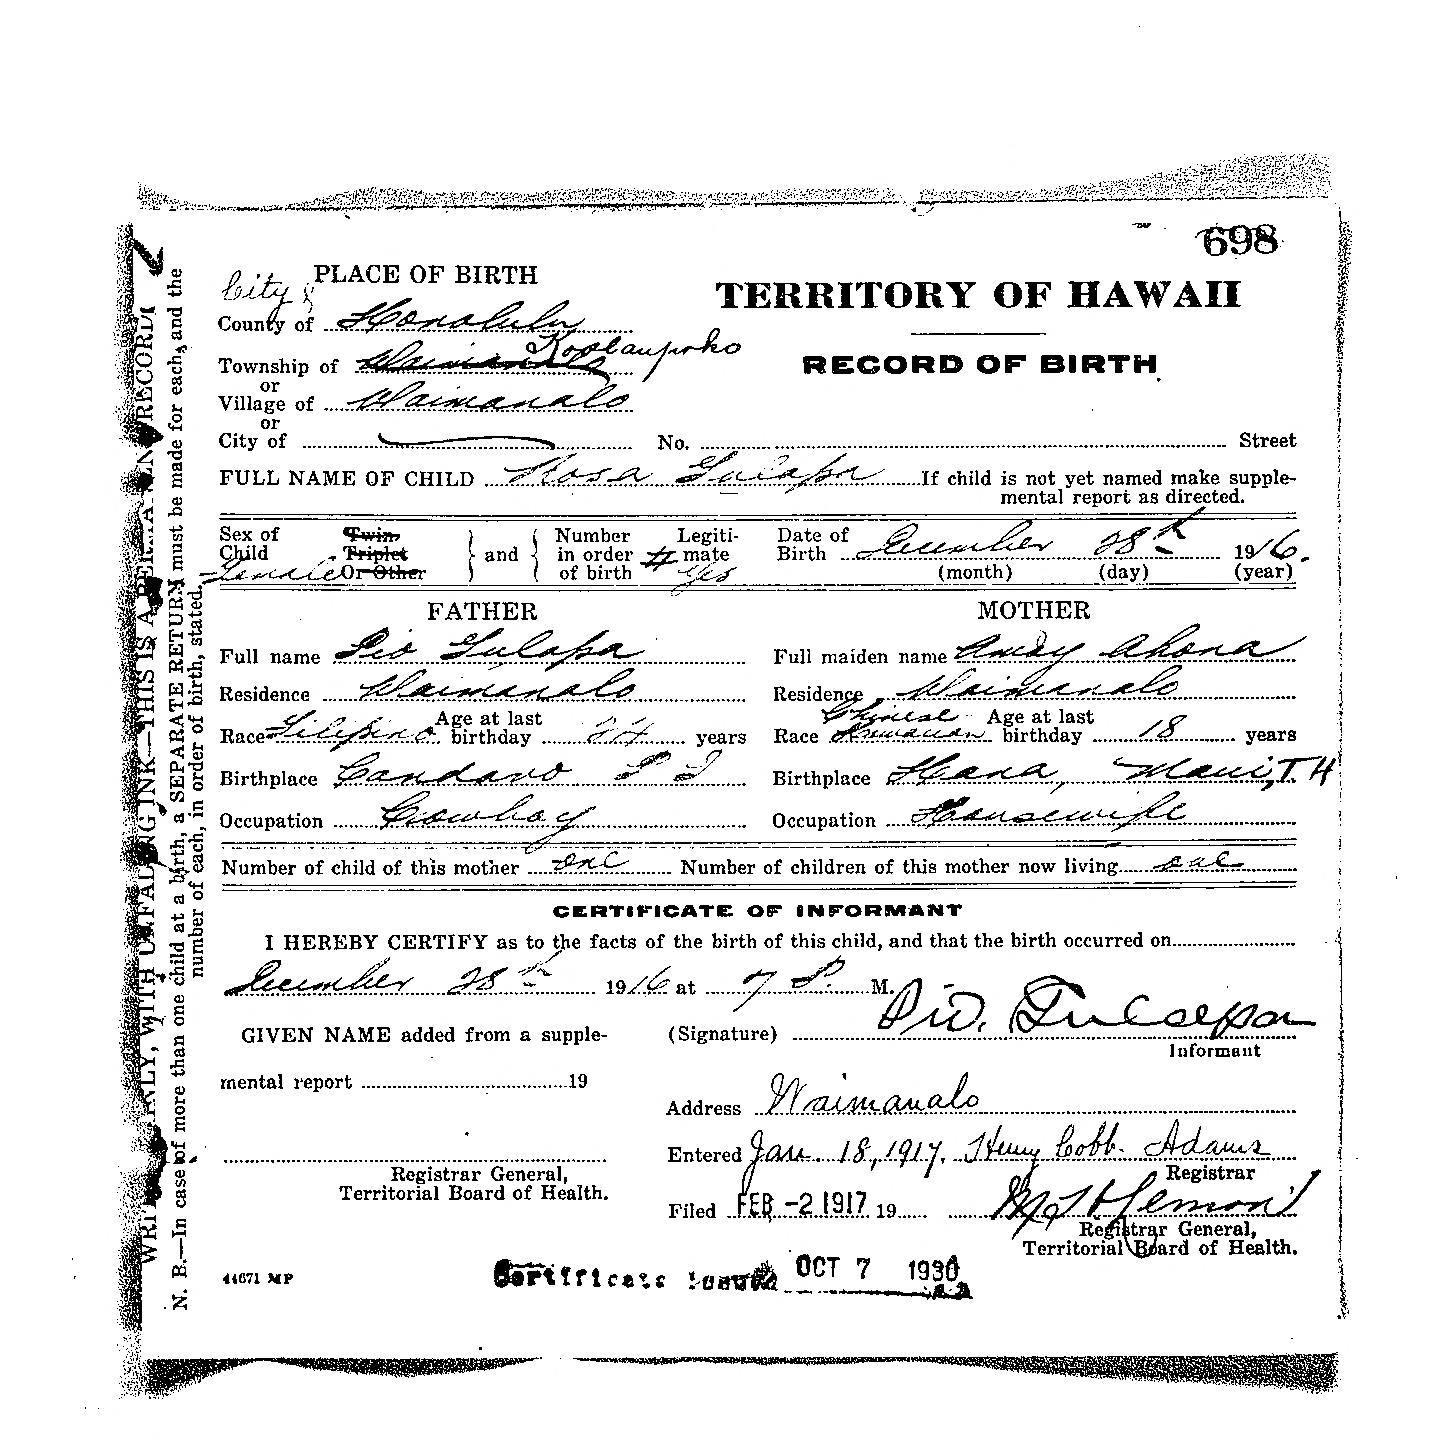 698
City &
PLACE OF BIRTH
TERRITORY OF HAWAII
County of Honolulu
RECORD OF BIRTH
Township of Waimanalo Koolaupoko
or
Village of Waimanalo
or
City of No. Street
FULL NAME OF CHILD Rosa If child is not yet named make supple-
mental report as directed.
Sex of Child Female Twin, Triplet Or Other } and { Number in order of birth Legiti-mate Yes Date of Birth December 28th 1916.
(month) (day) (year)
FATHER
MOTHER
Full name Pio Full maiden name Ahona
Residence Waimanalo Residence Waimanalo
Race Filipino Age at last birthday 24 years Race Chinese Hawaiian Age at last birthday 18 years
Birthplace P I Birthplace Hana, Maui, T H
Occupation Cowboy Occupation Housewife
Number of child of this mother one Number of children of this mother now living one
CERTIFICATE OF INFORMANT
I HEREBY CERTIFY as to the facts of the birth of this child, and that the birth occurred on
December 28th 1916 at 7 P. M.
GIVEN NAME added from a supple-
mental report 19
(Signature) Pio.
Informant
Address Waimanalo
Entered Jan. 18, 1917. Henry Cobb Adams
Registrar
Registrar General,
Territorial Board of Health.
Filed FEB -2 1917 19
Registrar General,
Territorial Board of Health.
44671 MP
Certificate issued OCT 7 1930
N. B.—In case of more than one child at a birth, a SEPARATE RETURN must be made for each, and the
number of each, in order of birth, stated.